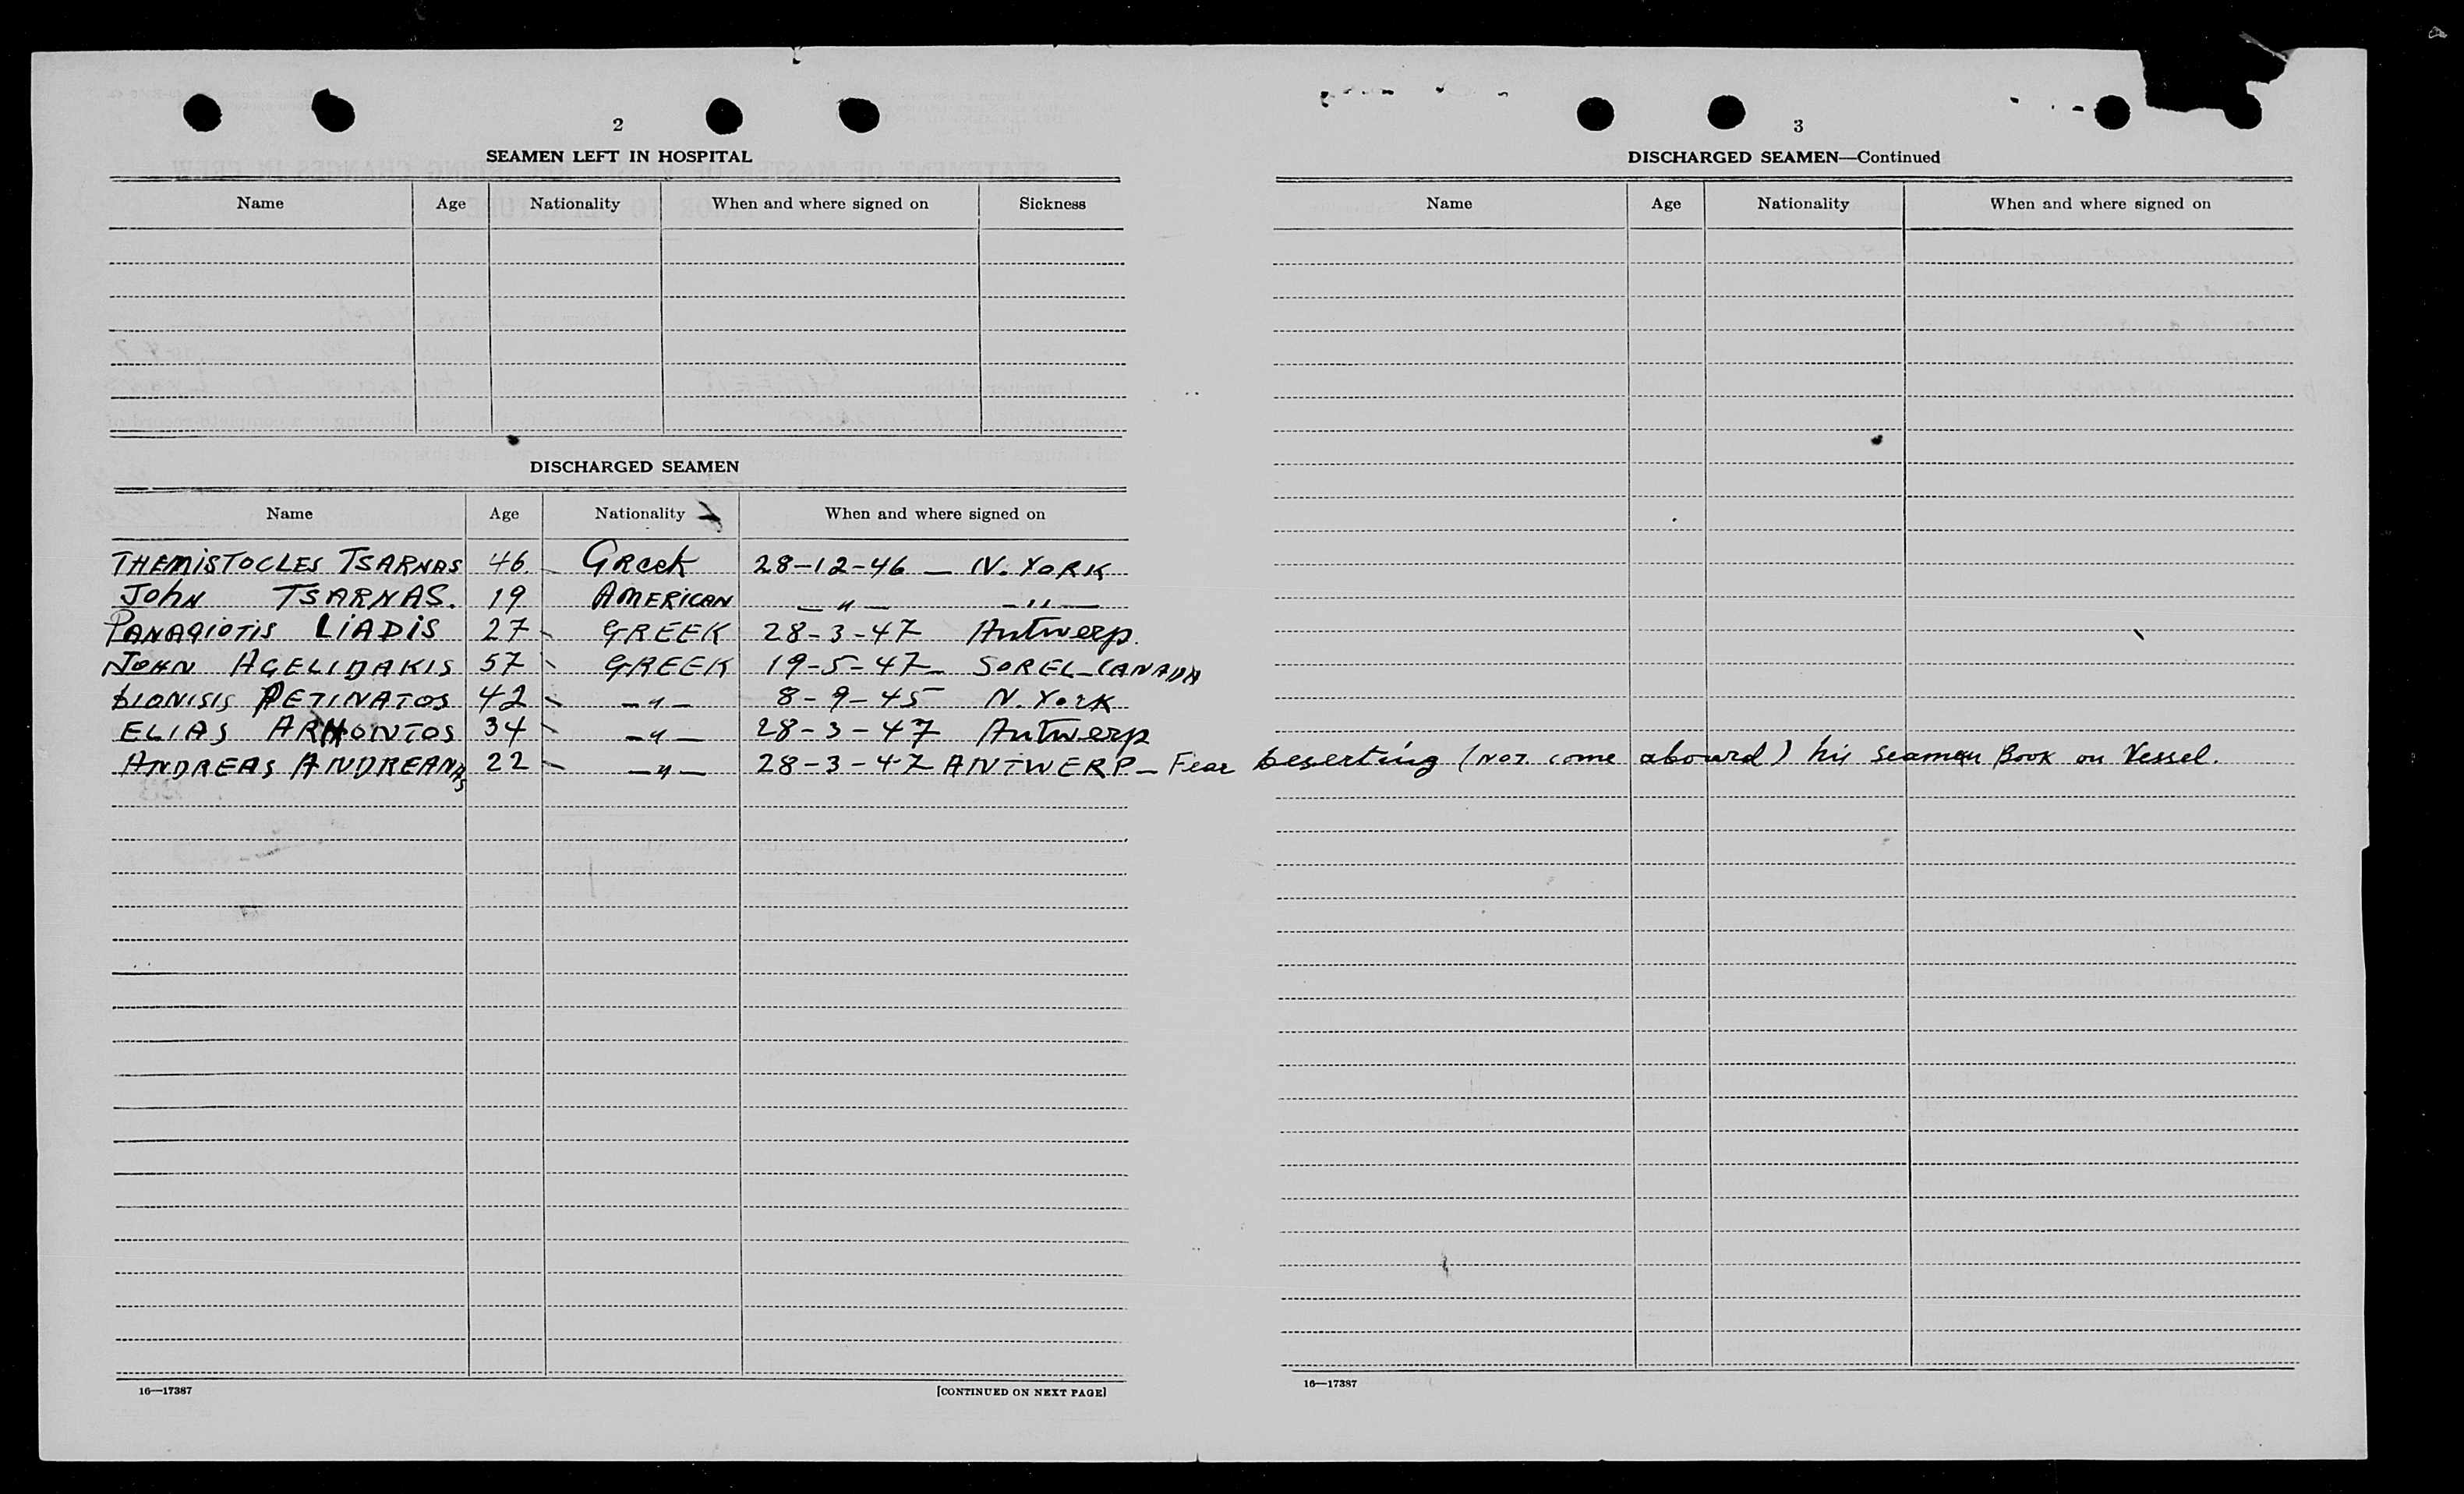 2
SEAMEN LEFT IN HOSPITAL
Name Age Nationality When and where signed on Sickness
DISCHARGED SEAMEN
Name Age Nationality When and where signed on
THEMISTOCLES TSARNAS 46 Greek 28-12-46 — N. YORK
John TSARNAS. 19 AMERICAN — " — — " —
PANAGIOTIS LIADIS 27 GREEK 28-3-47 Antwerp.
JOHN AGELIDAKIS 57 GREEK 19-5-47 — SOREL-CANADA
DIONISIS PETINATOS 42 — " — 8-9-45 N. York
ELIAS ARHONTOS 34 — " — 28-3-47 Antwerp
ANDREAS ANDREANAS 22 — " — 28-3-47 ANTWERP — Fear Deserting (not come aboard) his seaman Book on Vessel.
16—17387
[CONTINUED ON NEXT PAGE]
3
DISCHARGED SEAMEN—Continued
Name Age Nationality When and where signed on
16—17387